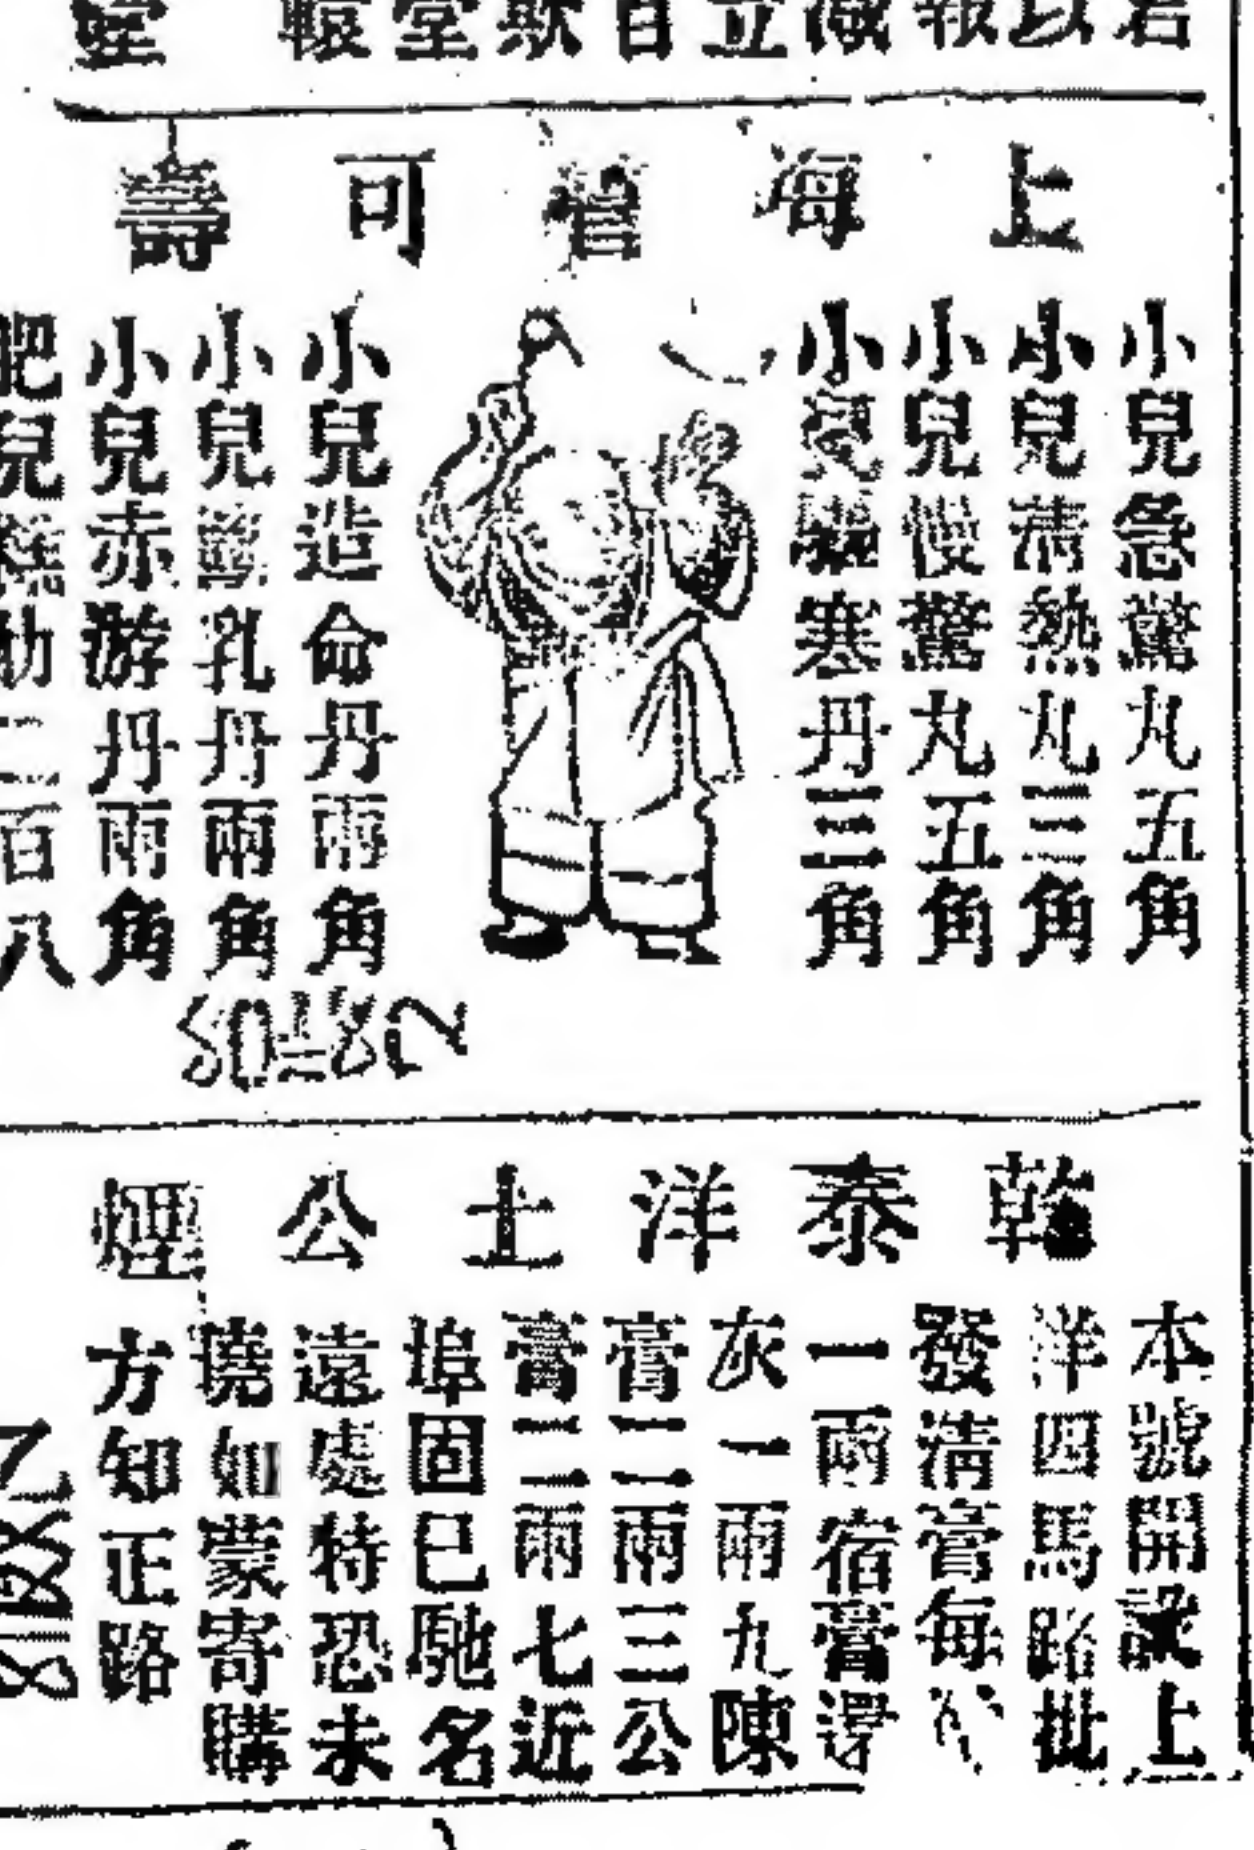 上海管可壽
小兒急驚丸五角
小兒清熱丸三角
小兒慢驚丸五角
小兒寒丹三角
小兒造命丹兩角
小兒乳丹兩角
小兒赤游丹兩角
肥兒糕励二百八
乾泰洋土公煙
本號開設上
洋四馬路批
發清膏每
一兩宿膏
灰一兩九陳
膏二兩三公
膏二兩七近
埠固已馳名
遠處特恐未
曉如蒙寄購
方知正路